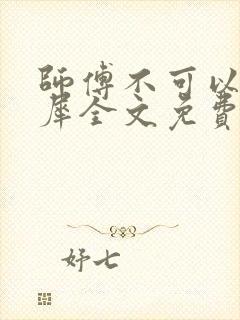 師傅不可以
犀全文免費
妤七